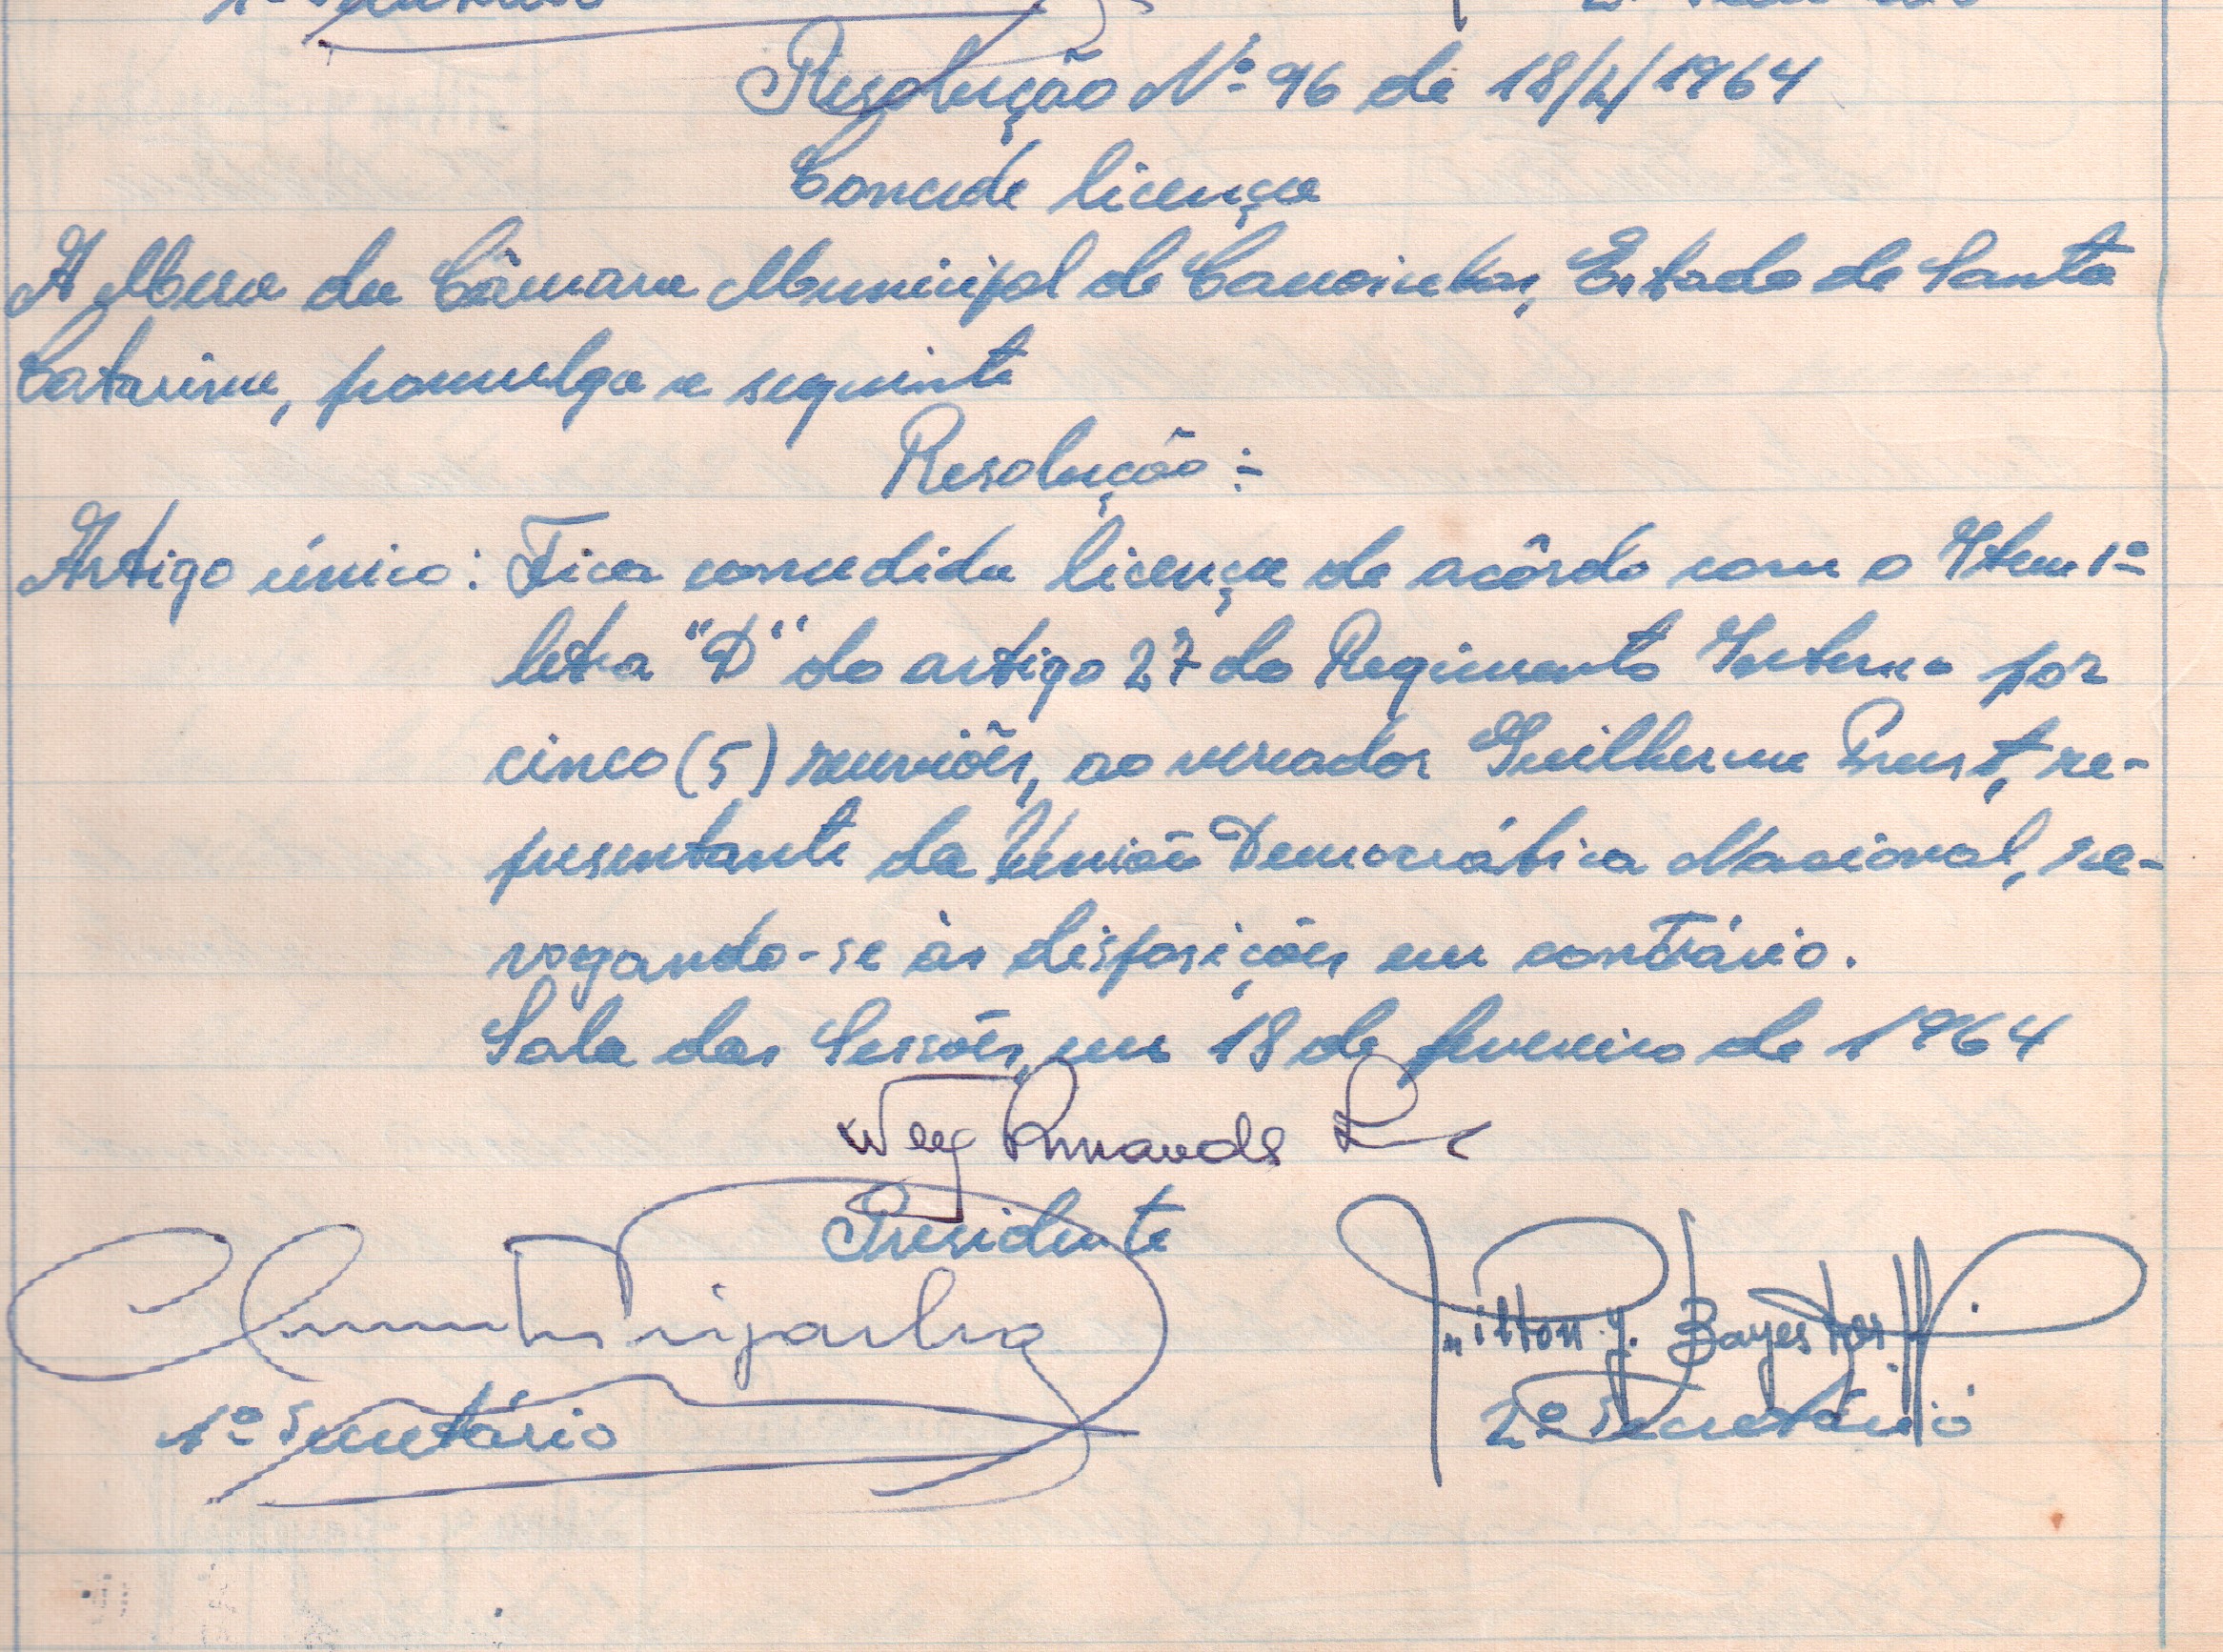 1º Secretário 2º Secretário
Resolução Nº 96 de 18/2/1964
Concede licença
A Mesa da Câmara Municipal de Canoinhas, Estado de Santa
Catarina, pomulga a seguinte
Resolução:-
Artigo único: Fica concedida licença de acôrdo com o Item 1º
letra "D" do artigo 27 do Regimento Interno por
cinco (5) reuniões, ao vereador Guilherme Prust, re-
presentante da União Democrática Nacional, re-
vogando-se às disposições em contrário.
Sala das Sessões, em 18 de fevereiro de 1964
Presidente
1º Secretário
2º Secretário